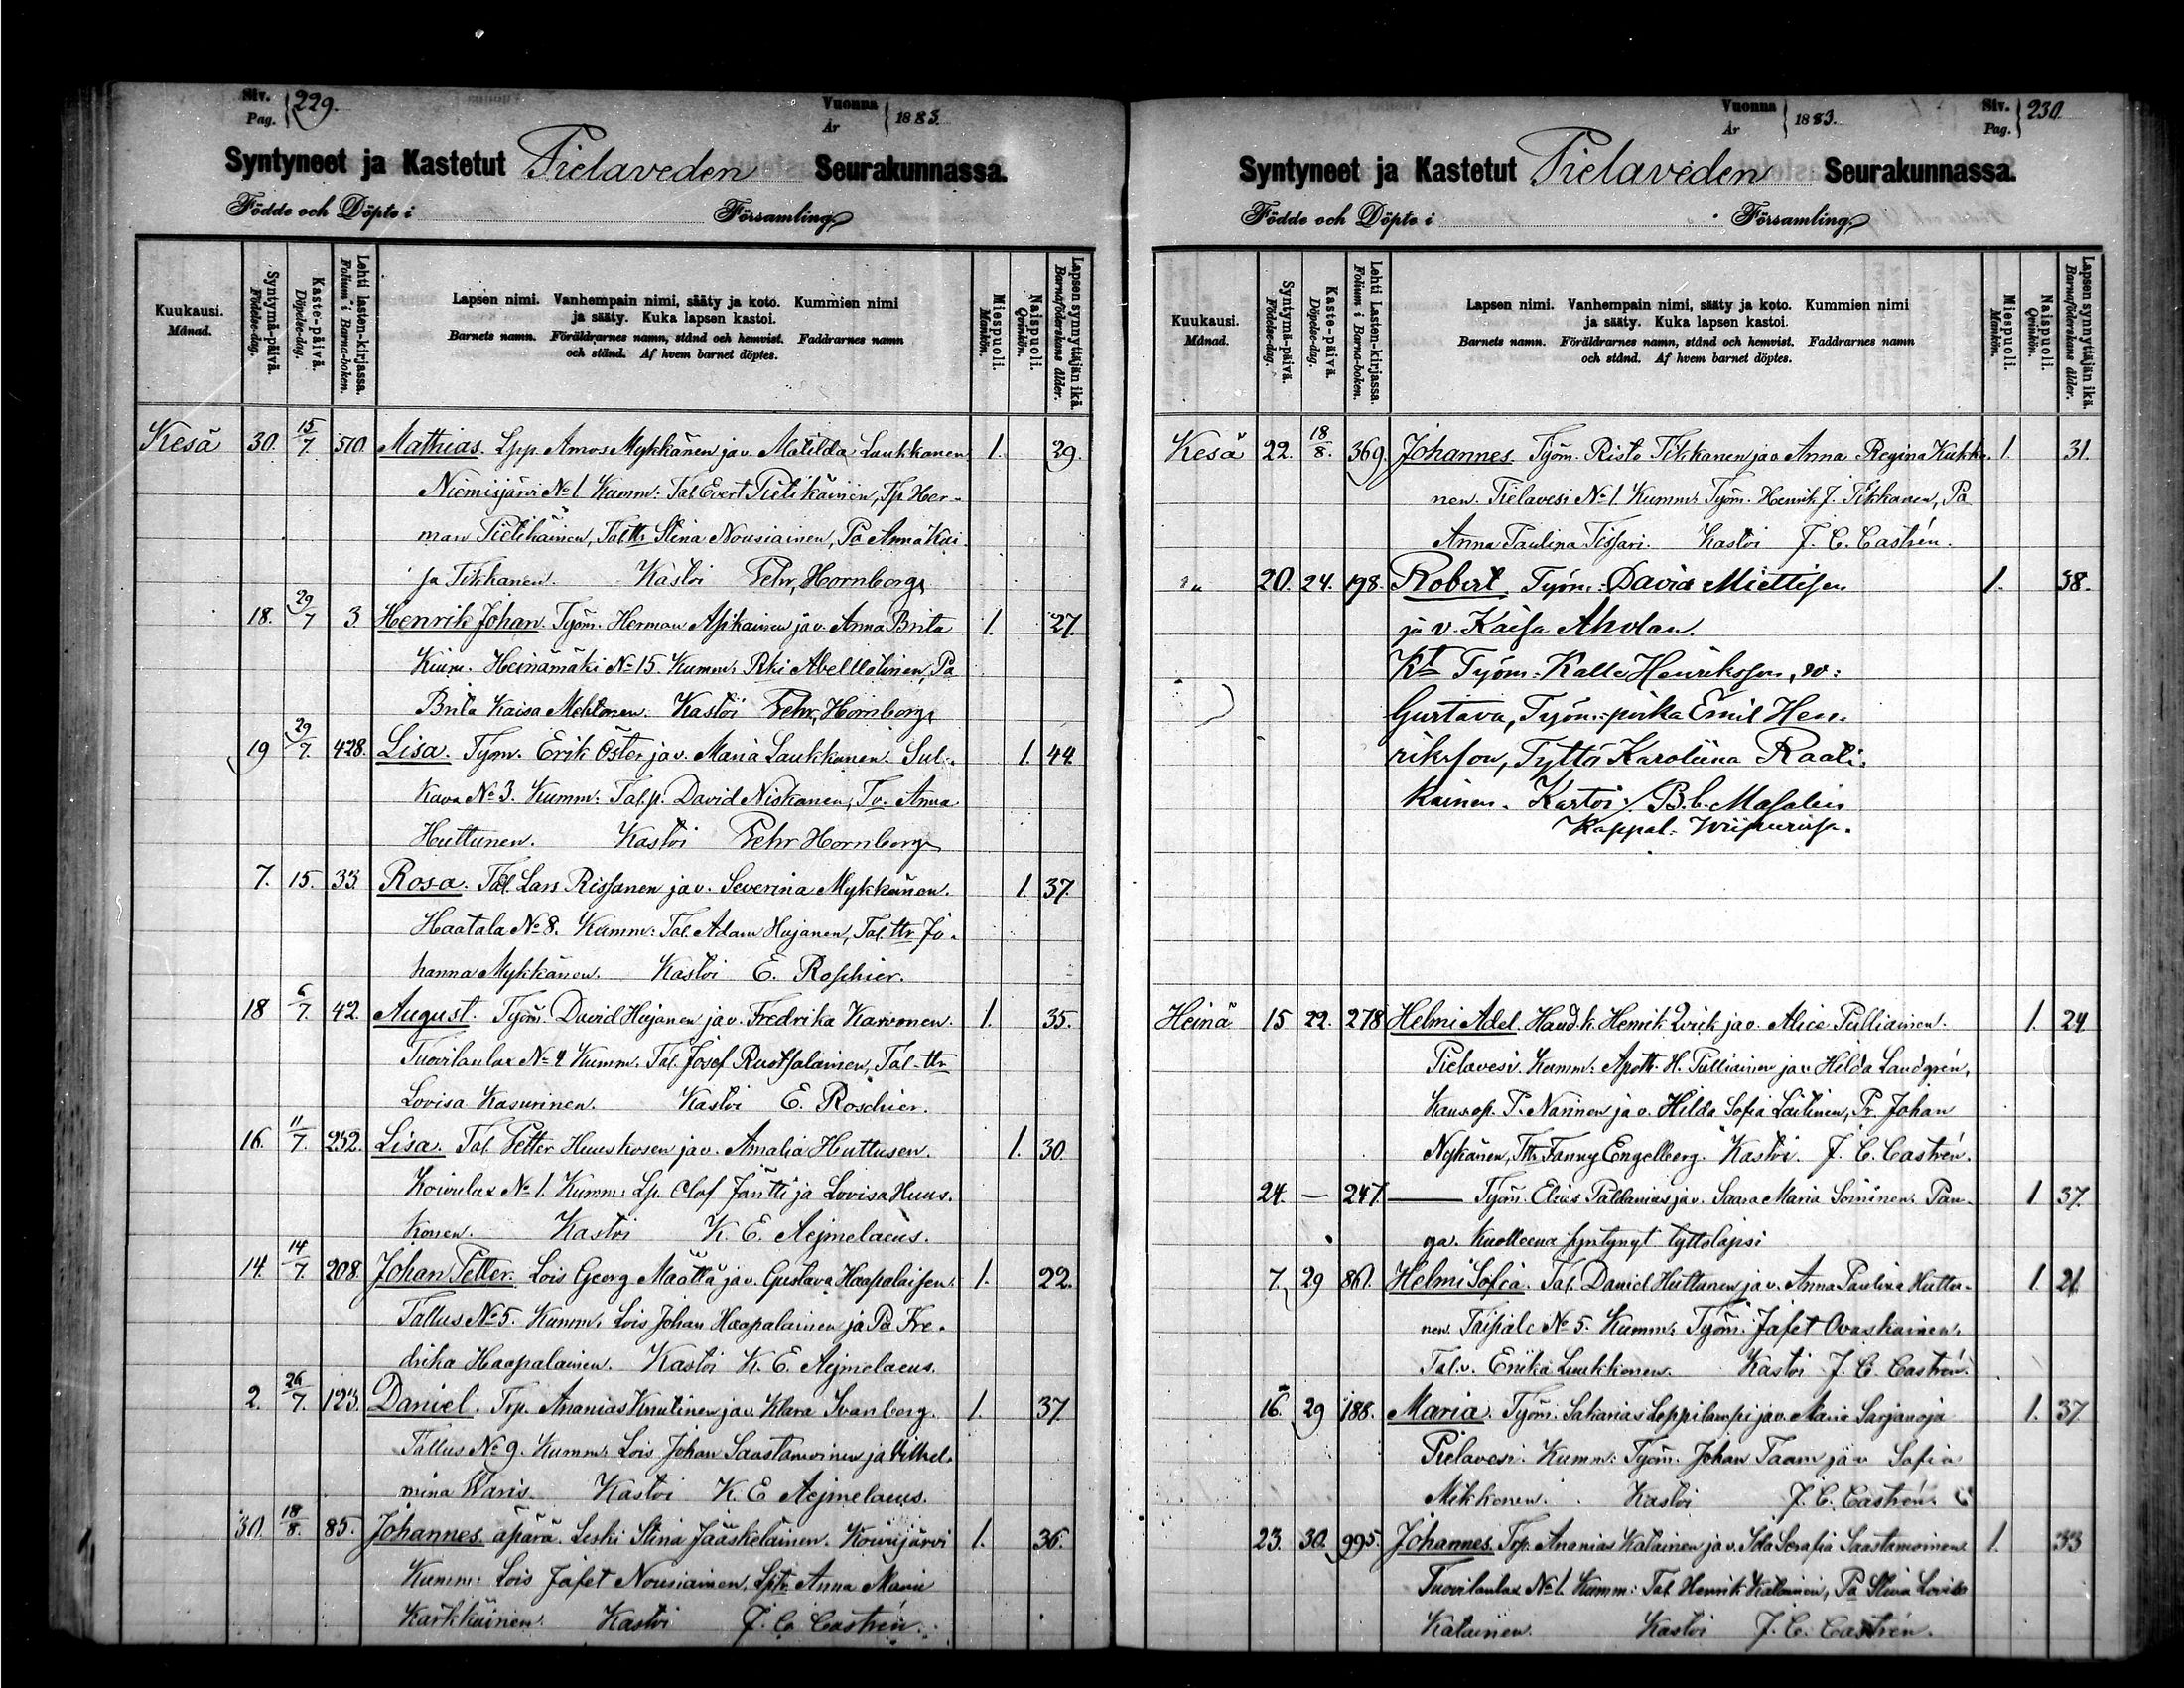 Siv. Pag. 229.
Vuonna År 1883.
Syntyneet ja Kastetut Pielaveden Seurakunnassa.
Födde och Döpte i Församling.
Kuukausi. Månad.
Syntymä-päivä. Födelse-dag.
Kaste-päivä. Döpelse-dag.
Lehti lasten-kirjassa. Folium i Barna-boken.
Lapsen nimi. Vanhempain nimi, sääty ja koto. Kummien nimi
ja sääty. Kuka lapsen kastoi.
Barnets namn. Föräldrarnes namn, stånd och hemvist. Faddrarnes namn
och stånd. Af hvem barnet döptes.
Miespuoli. Mankön.
Naispuoli. Qvinkön.
Lapsen synnyttäjän ikä. Barnaföderskans ålder.
Kesä 30. 15/7 510. Mathias. Lpp Amos Mykkänen ja v. Matilda Laukkanen 1. 29.
Niemisjärvi No 1. Kumm: Tal Evert Pietikäinen, Tp Her-
man Pietikäinen, Taltt. Stina Nousiainen, Pa Anna Kai-
sa Tikkanen. Kastoi Pehr Hornborg
18. 29/7 3 Henrik Johan. Työm. Herman Asikainen ja v. Anna Brita 1. 27.
Heinämäki No 15. Kumm: Rki Abel Pa
Brita Kaisa Mehtonen. Kastoi Pehr Hornborg
19 29/7. 428. Lisa. Työm. Erik Öster ja v. Maria Laukkanen. Sul- 1. 44.
kava No 3. Kumm: Tal.p. David Niskanen, Tv. Anna
Huttunen. Kastoi Pehr Hornborg
7. 15. 33. Rosa. Tal. Lars Rissanen ja v. Severina Mykkänen. 1. 37.
Haatala No 8. Kumm: Tal. Adam Hujanen, Tal. ttr Jo-
hanna Mykkänen. Kastoi E. Roschier.
18 6/7. 42. August. Työm. David Hujanen ja v. Fredrika Karvonen. 1. 35.
Tuovilanlax No 4 Kumm. Tal. Josef Ruotsalainen, Tal-ttr
Lovisa Kasurinen. Kastoi E. Roschier.
16. 11/7. 252. Lisa. Tal. Petter Huuskosen ja v. Amalia Huttusen. 1. 30.
Koivulax No 1. Kumm: Lp. Olof Jäntti ja Lovisa Huus-
konen. Kastoi K. E. Aejmelaeus.
14. 14/7. 208. Johan Petter. Lois Georg Määttä ja v. Gustava Haapalaisen. 1. 22.
Tallus No 5. Kumm. Lois Johan Haapalainen ja Pa Fre-
drika Haapalainen. Kastoi K. E. Aejmelaeus.
2. 26/7. 123. Daniel. Trp. Ananias Knutinen ja v. Klara Svanberg. 1. 37
Tallus No 9. Kumm: Lois Johan Saastamoinen ja Vilhel-
mina Waris. Kastoi K. E Aejmelaeus.
30. 18/8. 85. Johannes. äpärä. Leski Stina Jääskeläinen. Koivujärvi 1. 36.
Kumm: Lois Jafet Nousiainen, Anna Maria
Karkkäinen. Kastoi J. C. Castrén.
Vuonna År 1883.
Siv. Pag. 230.
Syntyneet ja Kastetut Pielaveden Seurakunnassa.
Födde och Döpte i Församling.
Kuukausi. Månad.
Syntymä-päivä. Födelse-dag.
Kaste-päivä. Döpelse-dag.
Lehti Lasten-kirjassa. Folium i Barna-boken.
Lapsen nimi. Vanhempain nimi, sääty ja koto. Kummien nimi
ja sääty. Kuka lapsen kastoi.
Barnets namn. Föräldrarnes namn, stånd och hemvist. Faddrarnes namn
och stånd. Af hvem barnet döptes.
Miespuoli. Mankön.
Naispuoli. Qvinkön.
Lapsen synnyttäjän ikä. Barnaföderskans ålder.
Kesä 22. 18/8. 369. Johannes. Työm. Risto Tikkanen ja v. Anna Regina Kukko- 1. 31.
nen. Pielavesi No 1. Kumm: Työm. Henrik J. Tikkanen, Pa
Anna Paulina Tissari. Kastoi J. C. Castrén.
" 20. 24. 198. Robert. Työm. David Miettisen 1. 38.
ja v. Kaisa Aholan.
Kt Työm: Kalle Henriksson, w:
Gustava, Työm:-poika Emil Hen-
riksson, Tyttö Karoliina Raati-
kainen. Kastoi B. C.
Kappal. Wiipurissa.
Heinä 15 22. 278 Helmi Adel. Haud.k. Henrik Qvick ja v. Alice Pulliainen. 1. 24
Pielavesi. Kumm: Apoth. H. Pulliainen ja v. Hilda Landgrén,
Kans.op. P. Narinen ja v. Hilda Sofia Laitinen, Pr. Johan
Nykänen, Ttr. Fanny Engelberg. Kastoi. J. C. Castrén.
24. — 247. — Työm. Elias Paldanius ja v. Saara Maria Soininen. Pan- 1 37.
ga. Kuolleena syntynyt tyttolapsi
7. 29 861. Helmi Sofia. Tal. Daniel Huttunen ja v. Anna Paulina Huttu- 1. 21.
nen. Taipale No 5. Kumm: Työm. Jafet Ovaskainen,
Tal.v. Erika Luukkonen. Kastoi J. C. Castrén.
16. 29 188. Maria. Työm. Sakarias Leppilampi ja v. Maria Sarjanoja 1. 37
Pielavesi. Kumm: Työm. Johan Taam ja v Sofia
Mikkonen. Kastoi J. C. Castrén.
23. 30. 995. Johannes. Trp. Ananias Kalainen ja v. Ida Serafia Saastamoinen. 1. 33
Tuovilanlax No 1. Kumm: Tal. Henrik Kalainen, Pa Stina Lovisa
Kalainen. Kastoi J. C. Castrén.